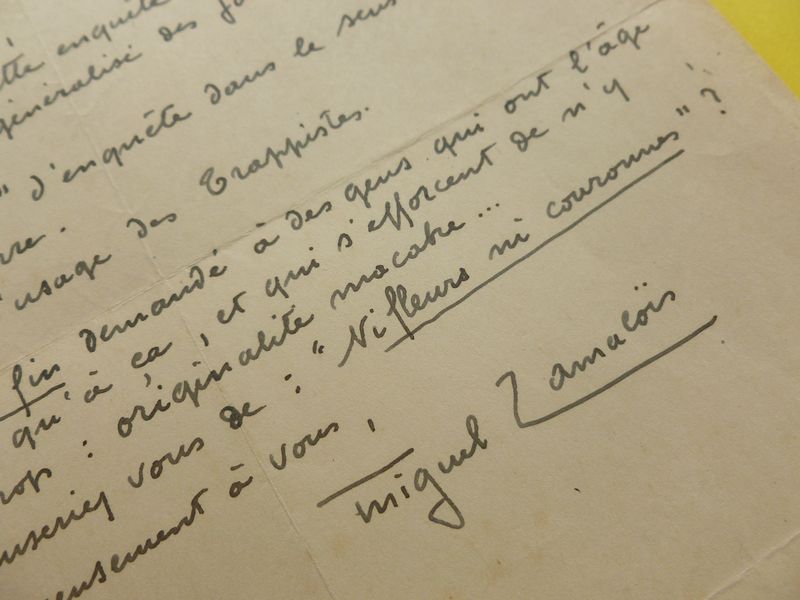 enquête
généralisé des
d'enquête dans le sens
usage des Trappistes.
fin demandé à des gens qui ont l'âge
qu'à ça, et qui s'efforcent de n'y
: originalité macabre...
vous de : "Ni fleurs ni couronnes" ?
à vous,
miguel Zamacoïs